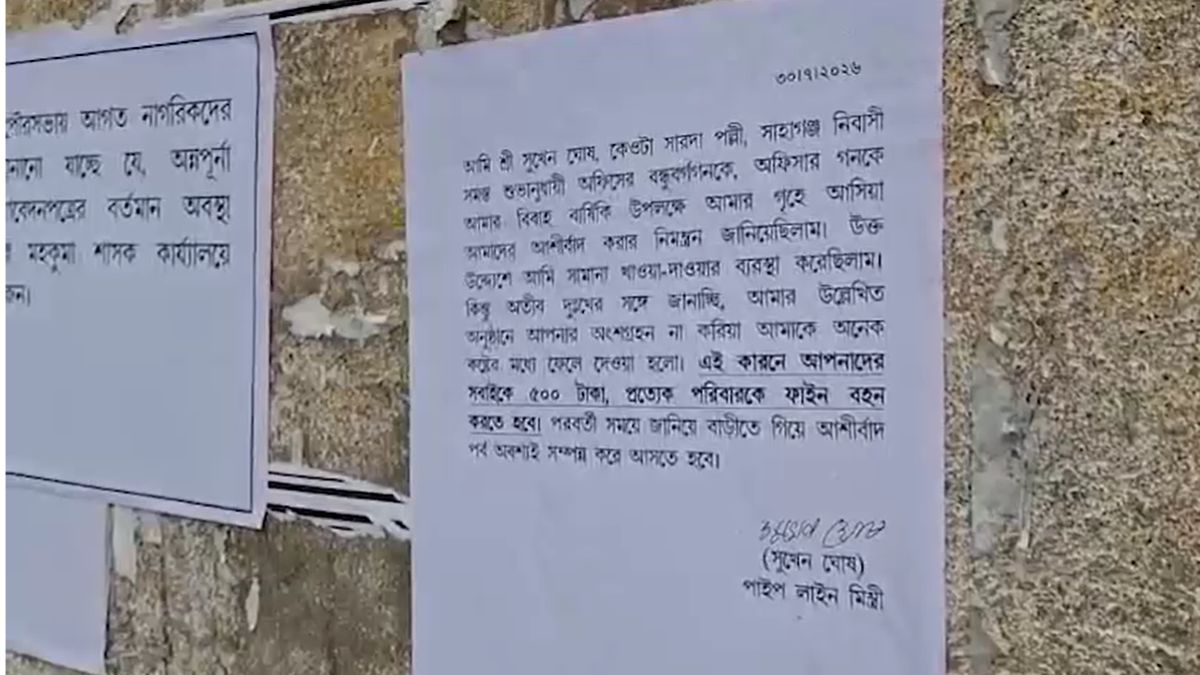 পৌরসভায় আগত নাগরিকদের
জানানো যাচ্ছে যে, অন্নপূর্না
আবেদনপত্রের বর্তমান অবস্থা
মহকুমা শাসক কার্য্যালয়ে
৩০/৭/২০২৬
আমি শ্রী সুখেন ঘোষ, কেওটা সারদা পল্লী, সাহাগঞ্জ নিবাসী
সমস্ত শুভানুধায়ী অফিসের বন্ধুবর্গগনকে, অফিসার গনকে
আমার বিবাহ বার্ষিকি উপলক্ষে আমার গৃহে আসিয়া
আমাদের আশীর্বাদ করার নিমন্ত্রন জানিয়েছিলাম। উক্ত
উদ্দ্যেশে আমি সামান্য খাওয়া-দাওয়ার ব্যবস্থা করেছিলাম।
কিন্তু অতীব দুঃখের সঙ্গে জানাচ্ছি, আমার উল্লেখিত
অনুষ্ঠানে আপনার অংশগ্রহন না করিয়া আমাকে অনেক
কষ্টের মধ্যে ফেলে দেওয়া হলো। এই কারনে আপনাদের
সবাইকে ৫০০ টাকা, প্রত্যেক পরিবারকে ফাইন বহন
করতে হবে। পরবর্তী সময়ে জানিয়ে বাড়ীতে গিয়ে আশীর্বাদ
পর্ব অবশ্যই সম্পন্ন করে আসতে হবে।
(সুখেন ঘোষ)
পাইপ লাইন মিস্ত্রী